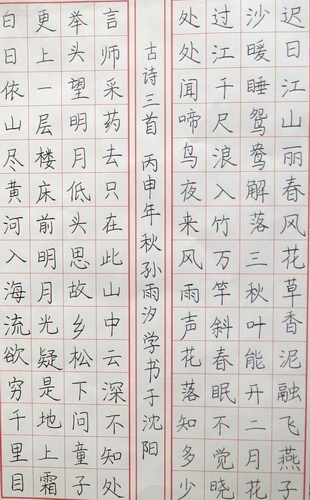 迟日江山丽春风花草香泥融飞燕子
沙暖睡鸳鸯解落三秋叶能开二月花
过江千尺浪入竹万竿斜春眠不觉晓
处处闻啼鸟夜来风雨声花落知多少
古诗三首 丙申年秋孙雨汐学书于沈阳
白日依山尽黄河入海流欲穷千里目
更上一层楼床前明月光疑是地上霜
举头望明月低头思故乡松下问童子
言师采药去只在此山中云深不知处